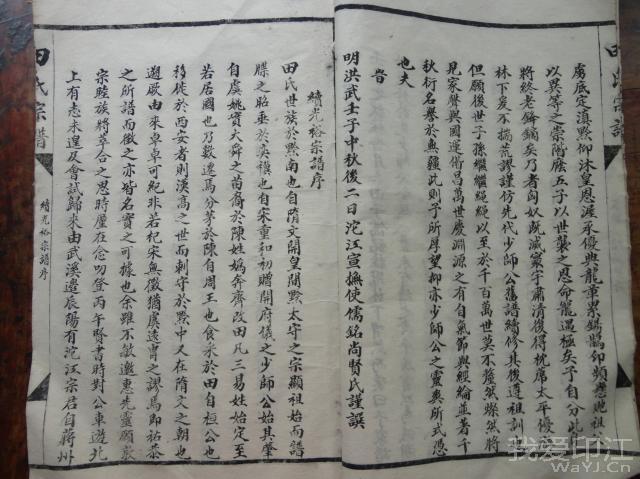 虜底定滇黔仰沐皇恩渥承優典龍章累錫鵲卬頻懸地祖
以異等之崇階廕五子以世襲之恩命寵遇極矣予自分此
將終老鋒鏑矣乃者匈奴既滅寰宇肅清復得枕蓆太平優
林下爰不揣荒謬謹仿先代少師公舊譜續修其後遵祖訓
但願後世子孫繼繼繩繩以至於千百萬世莫不釐然燦然將
見家聲與國運衕昌萬世慶淵源之有自氣節與經綸並著千
秋衍名譽於無疆此則予所厚望抑亦少師公之靈爽所式憑
也夫
旹
明洪武壬子中秋後二日沱江宣撫使儒銘尚賢氏謹譔
續光裕宗譜序
田氏世族於黔南也自隋文開皇間黔太守之宗顯祖始而譜
牒之昭垂於奕禩也自宋重和初贈開府儀之少師公始其肇
自虞姚實大舜之苗裔於陳姓媯奔齊改田凡三易姓始定至
若居國也乃數遷焉分茅於陳自周王也食采於田自桓公也
移徙於西安者則漢高之世而剌守於黔中又在隋文之朝也
遡厥由來卓卓可紀非若杞宋無徵猶虞遠胄之謬焉即祐恭
之所譜而徵之亦皆名實之可據也余雖不敏邀惠先靈願裒
宗睦族將萃合之思時廑在念叨登丙午賢書時對公車遊北
上有志未遑及會試歸來由武溪遶辰陽有沱江宗君自蔣州
田氏宗譜
續光裕宗譜序
我爱印江
WaYJ.Cn